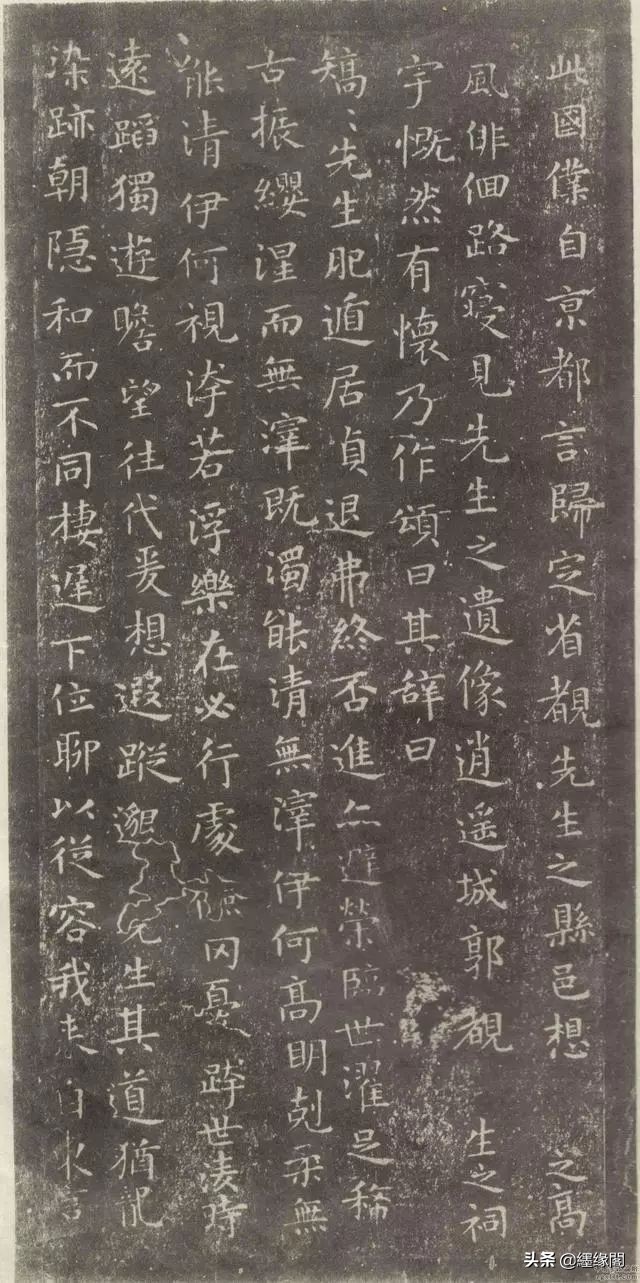 此國僕自京都言歸定省覩先生之縣邑想之高
風俳佪路寑見先生之遺像逍遥城郭覩生之祠
宇慨然有懷乃作頌曰其辭曰
矯〻先生肥遁居貞退弗終否進亦避榮臨世濯足稀
古振纓涅而無滓既濁能清無滓伊何高明剋柔無
能清伊何視洿若浮樂在必行處儉罔憂跨世淩時
遠蹈獨遊瞻望往代爰想遐蹤邈先生其道猶龍
染跡朝隱和而不同棲遲下位聊以從容我来自東言
头条 @纆缘閣